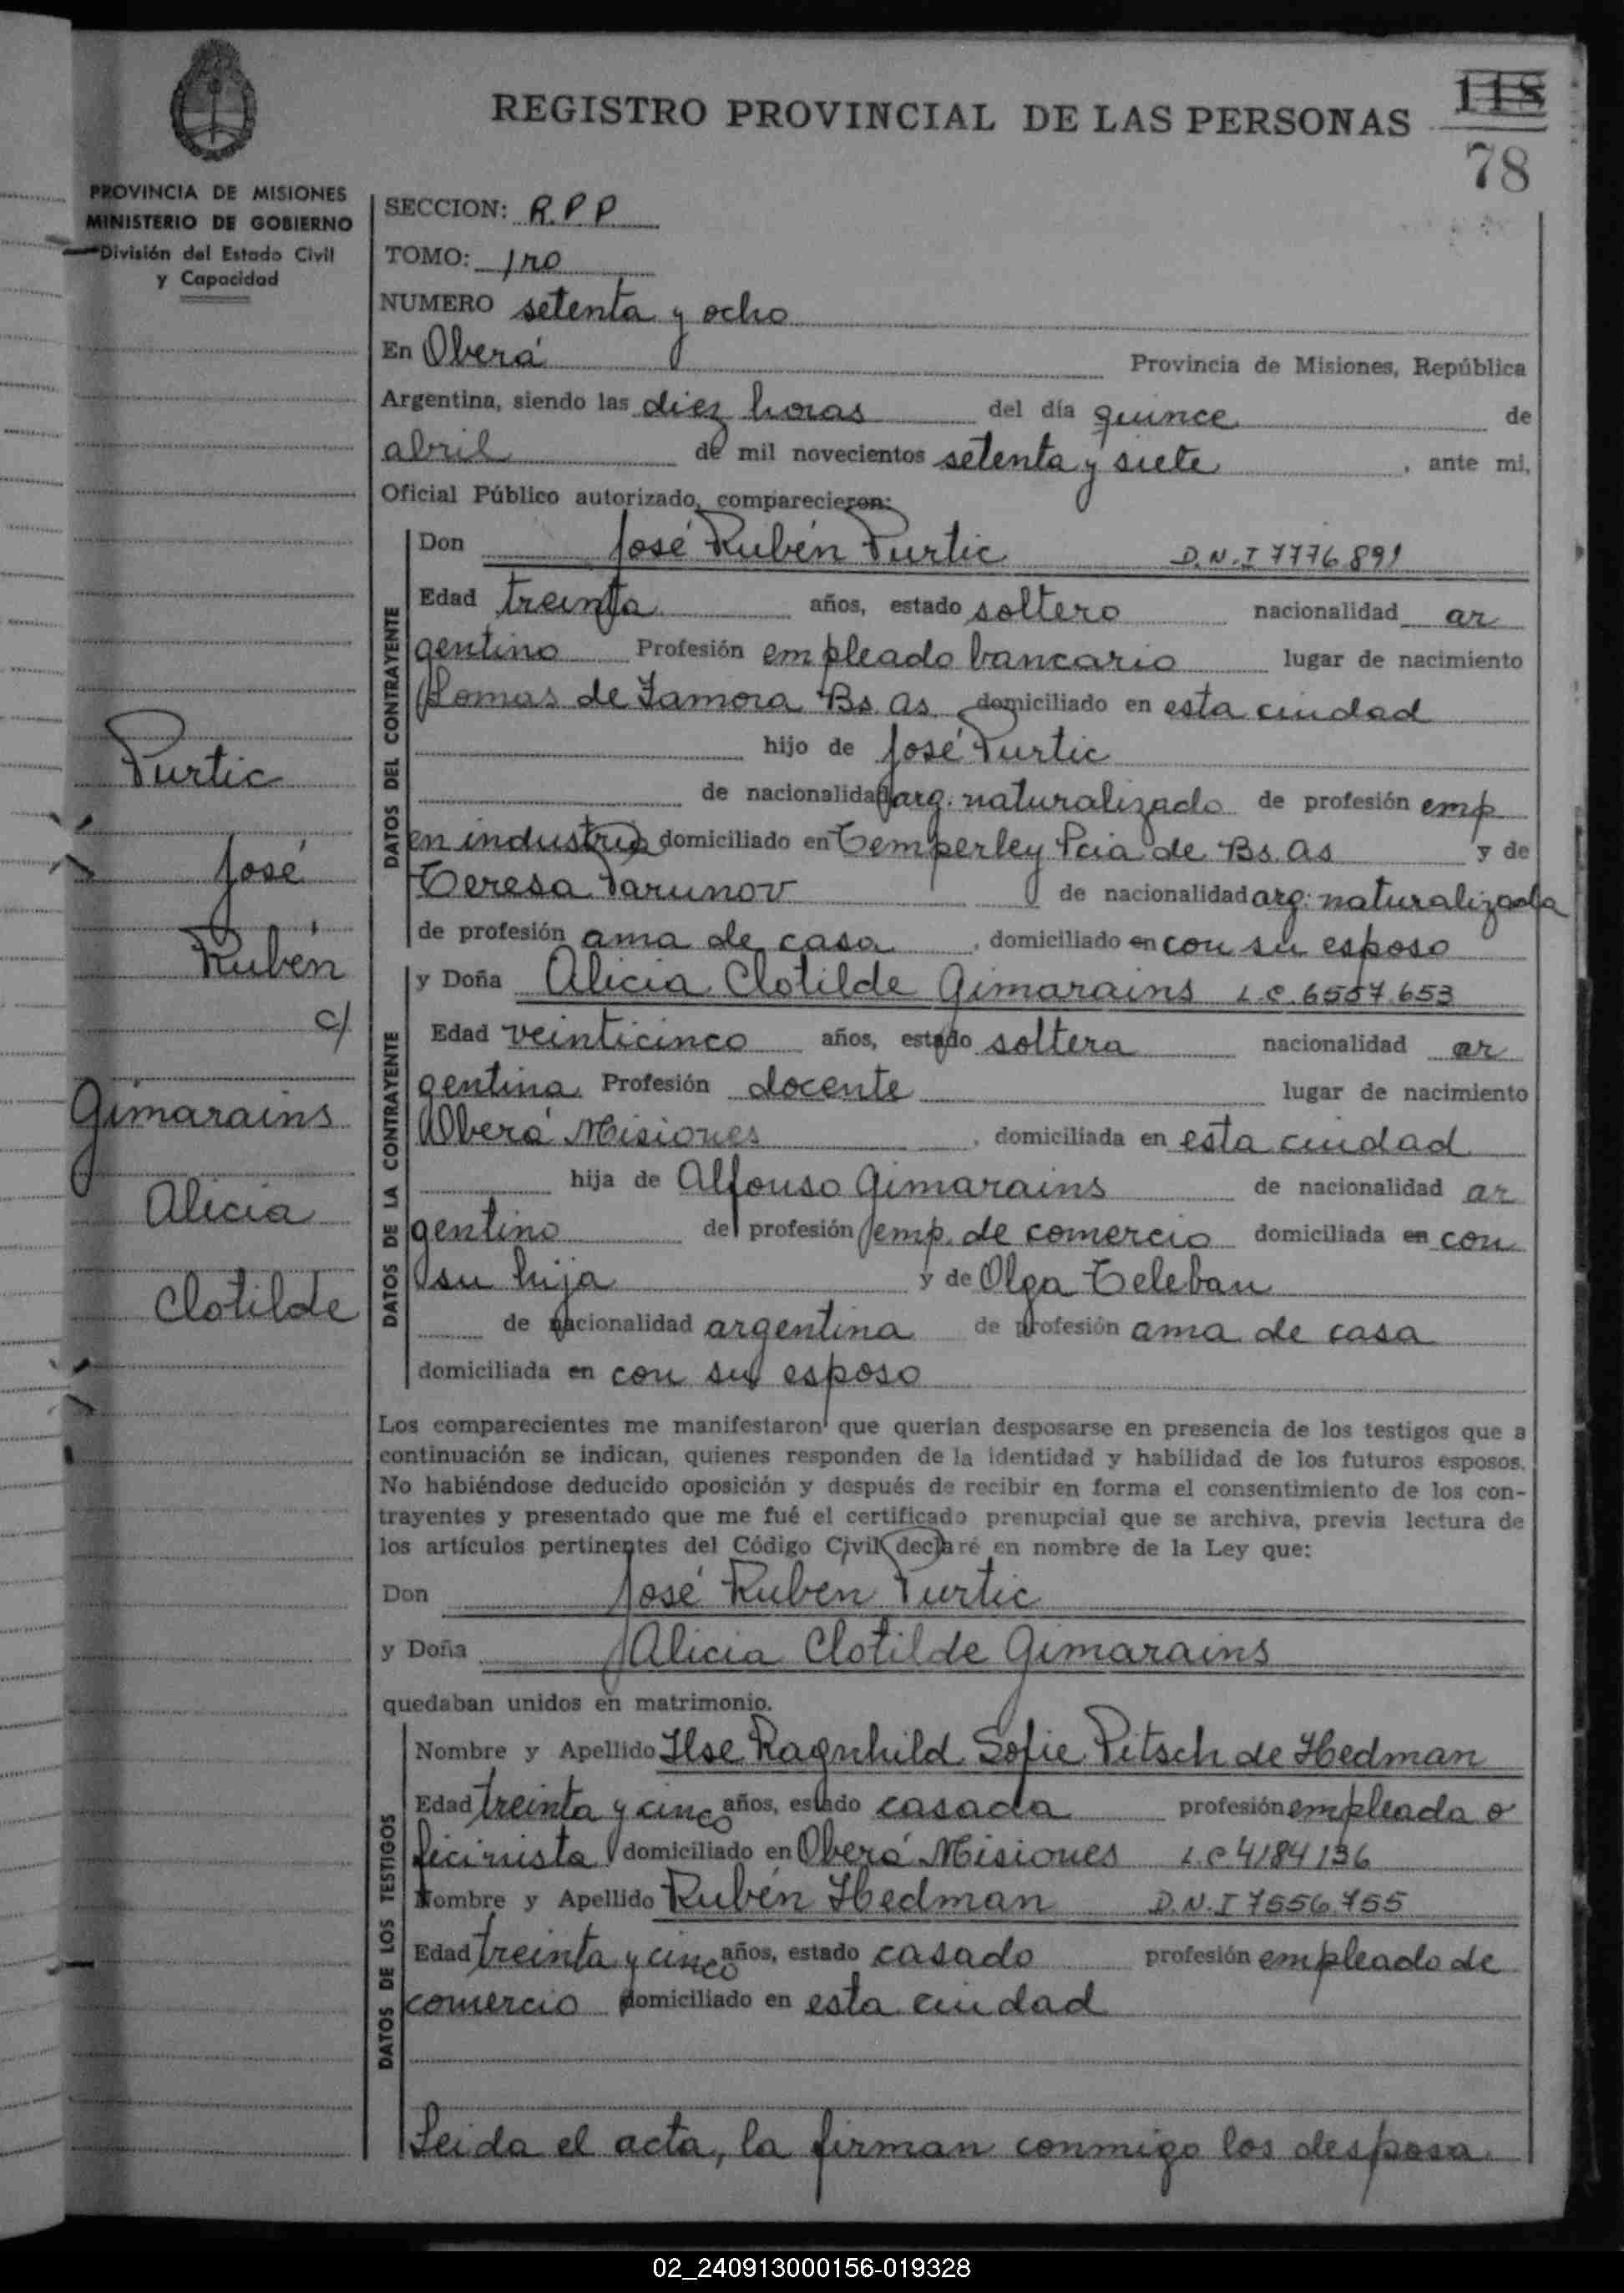 REGISTRO PROVINCIAL DE LAS PERSONAS
118
78
PROVINCIA DE MISIONES
MINISTERIO DE GOBIERNO
División del Estado Civil
y Capacidad
SECCION: R.P.P
TOMO: 1ro
NUMERO setenta y ocho
En Oberá Provincia de Misiones, República
Argentina, siendo las diez horas del día quince de
abril de mil novecientos setenta y siete, ante mi,
Oficial Público autorizado, comparecieron:
DATOS DEL CONTRAYENTE
Don José Rubén Purtic D.N.I 7776891
Edad treinta años, estado soltero nacionalidad ar
gentino Profesión empleado bancario lugar de nacimiento
Lomas de Zamora Bs. as. domiciliado en esta ciudad
hijo de José Purtic
de nacionalidad arg. naturalizado de profesión emp
en industria domiciliado en Temperley Pcia de Bs. as y de
Teresa Parunov de nacionalidad arg. naturalizada
de profesión ama de casa, domiciliado en con su esposo
Purtic
José
Rubén
c/
Gimarains
Alicia
Clotilde
DATOS DE LA CONTRAYENTE
y Doña Alicia Clotilde Gimarains L.C. 6557.653
Edad veinticinco años, estado soltera nacionalidad ar
gentina Profesión docente lugar de nacimiento
Oberá Misiones, domiciliada en esta ciudad
hija de Alfonso Gimarains de nacionalidad ar
gentino de profesión emp. de comercio domiciliada en con
su hija y de Olga Teleban
de nacionalidad argentina de profesión ama de casa
domiciliada en con su esposo
Los comparecientes me manifestaron que querian desposarse en presencia de los testigos que a
continuación se indican, quienes responden de la identidad y habilidad de los futuros esposos.
No habiéndose deducido oposición y después de recibir en forma el consentimiento de los con-
trayentes y presentado que me fué el certificado prenupcial que se archiva, previa lectura de
los artículos pertinentes del Código Civil declaré en nombre de la Ley que:
Don José Rubén Purtic
y Doña Alicia Clotilde Gimarains
quedaban unidos en matrimonio.
DATOS DE LOS TESTIGOS
Nombre y Apellido Ilse Ragnhild Sofie Pitsch de Hedman
Edad treinta y cinco años, estado casada profesión empleada o
ficinista domiciliado en Oberá Misiones L.C 4184136
Nombre y Apellido Rubén Hedman D.N.I 7556.755
Edad treinta y cinco años, estado casado profesión empleado de
comercio domiciliado en esta ciudad
Leida el acta, la firman conmigo los desposa
02_240913000156-019328